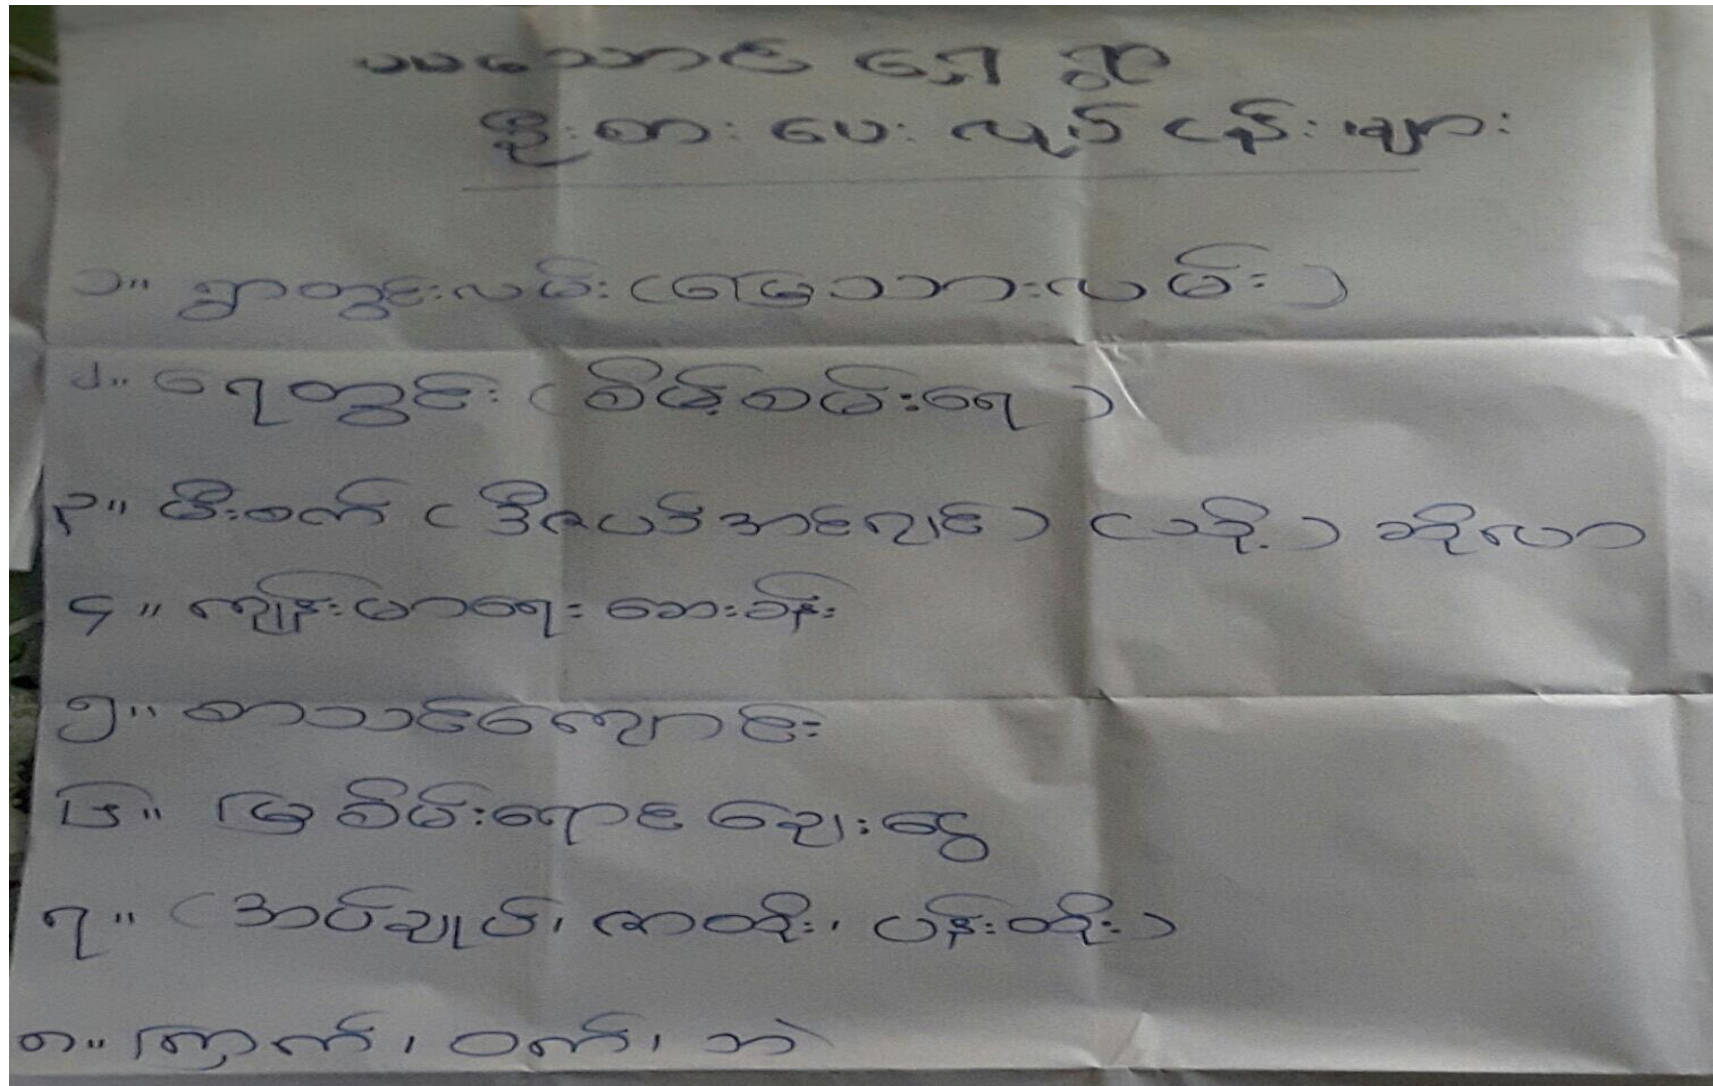 ပမသောင်ရှေ့ရွာ
ဦးစားပေးလုပ်ငန်းများ
၁။ ရွာတွင်းလမ်း (မြေသားလမ်း)
၂။ ရေတွင်း (စိမ့်စမ်းရေ)
၃။ မီးစက် (ဒီဇယ်အင်ဂျင်) (သို့) ဆိုလာ
၄။ ကျန်းမာရေး ဆေးခန်း
၅။ စာသင်ကျောင်း
၆။ မြစိမ်းရောင် ချေးငွေ
၇။ (အပ်ချုပ်၊ ဇာထိုး၊ ပန်းထိုး)
၈။ ကြက်၊ ဝက်၊ ဘဲ